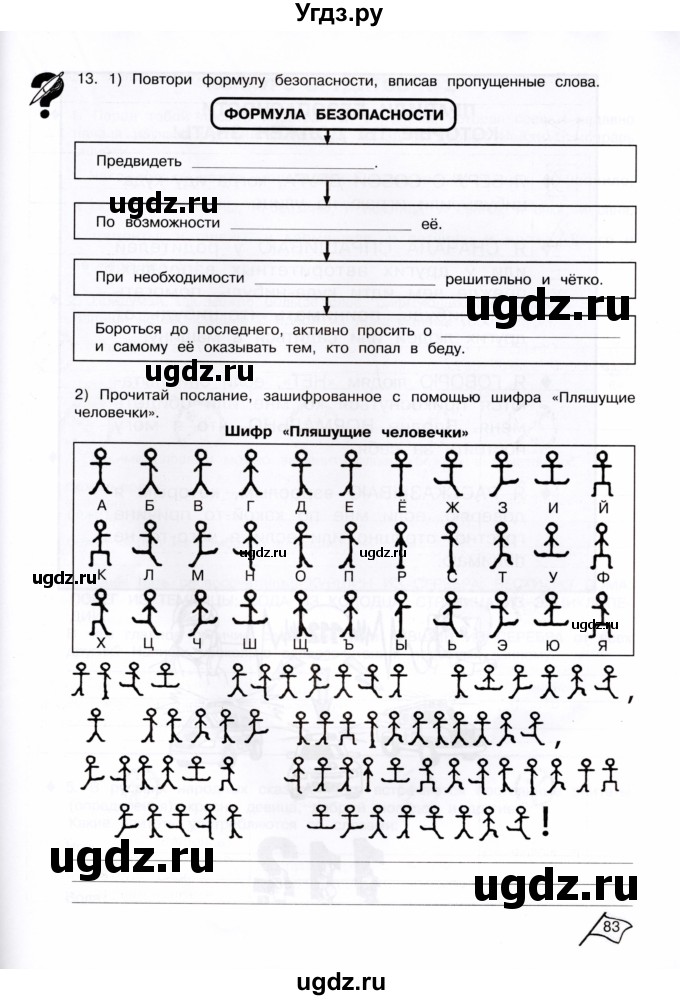 Угдз.ру
13. 1) Повтори формулу безопасности, вписав пропущенные слова.
ФОРМУЛА БЕЗОПАСНОСТИ
Предвидеть .
ugdz.ru
По возможности её.
При необходимости решительно и чётко.
ugdz.ru
Бороться до последнего, активно просить о
и самому её оказывать тем, кто попал в беду.
ugdz.ru
2) Прочитай послание, зашифрованное с помощью шифра «Пляшущие
человечки».
Шифр «Пляшущие человечки»
А Б В Г Д Е Ё Ж З И Й
ugdz.ru
К Л М Н О П Р С Т У Ф
ugdz.ru
Х Ц Ч Ш Щ Ъ Ы Ь Э Ю Я
,
,
!
ugdz.ru
ugdz.ru
83
ugdz.ru